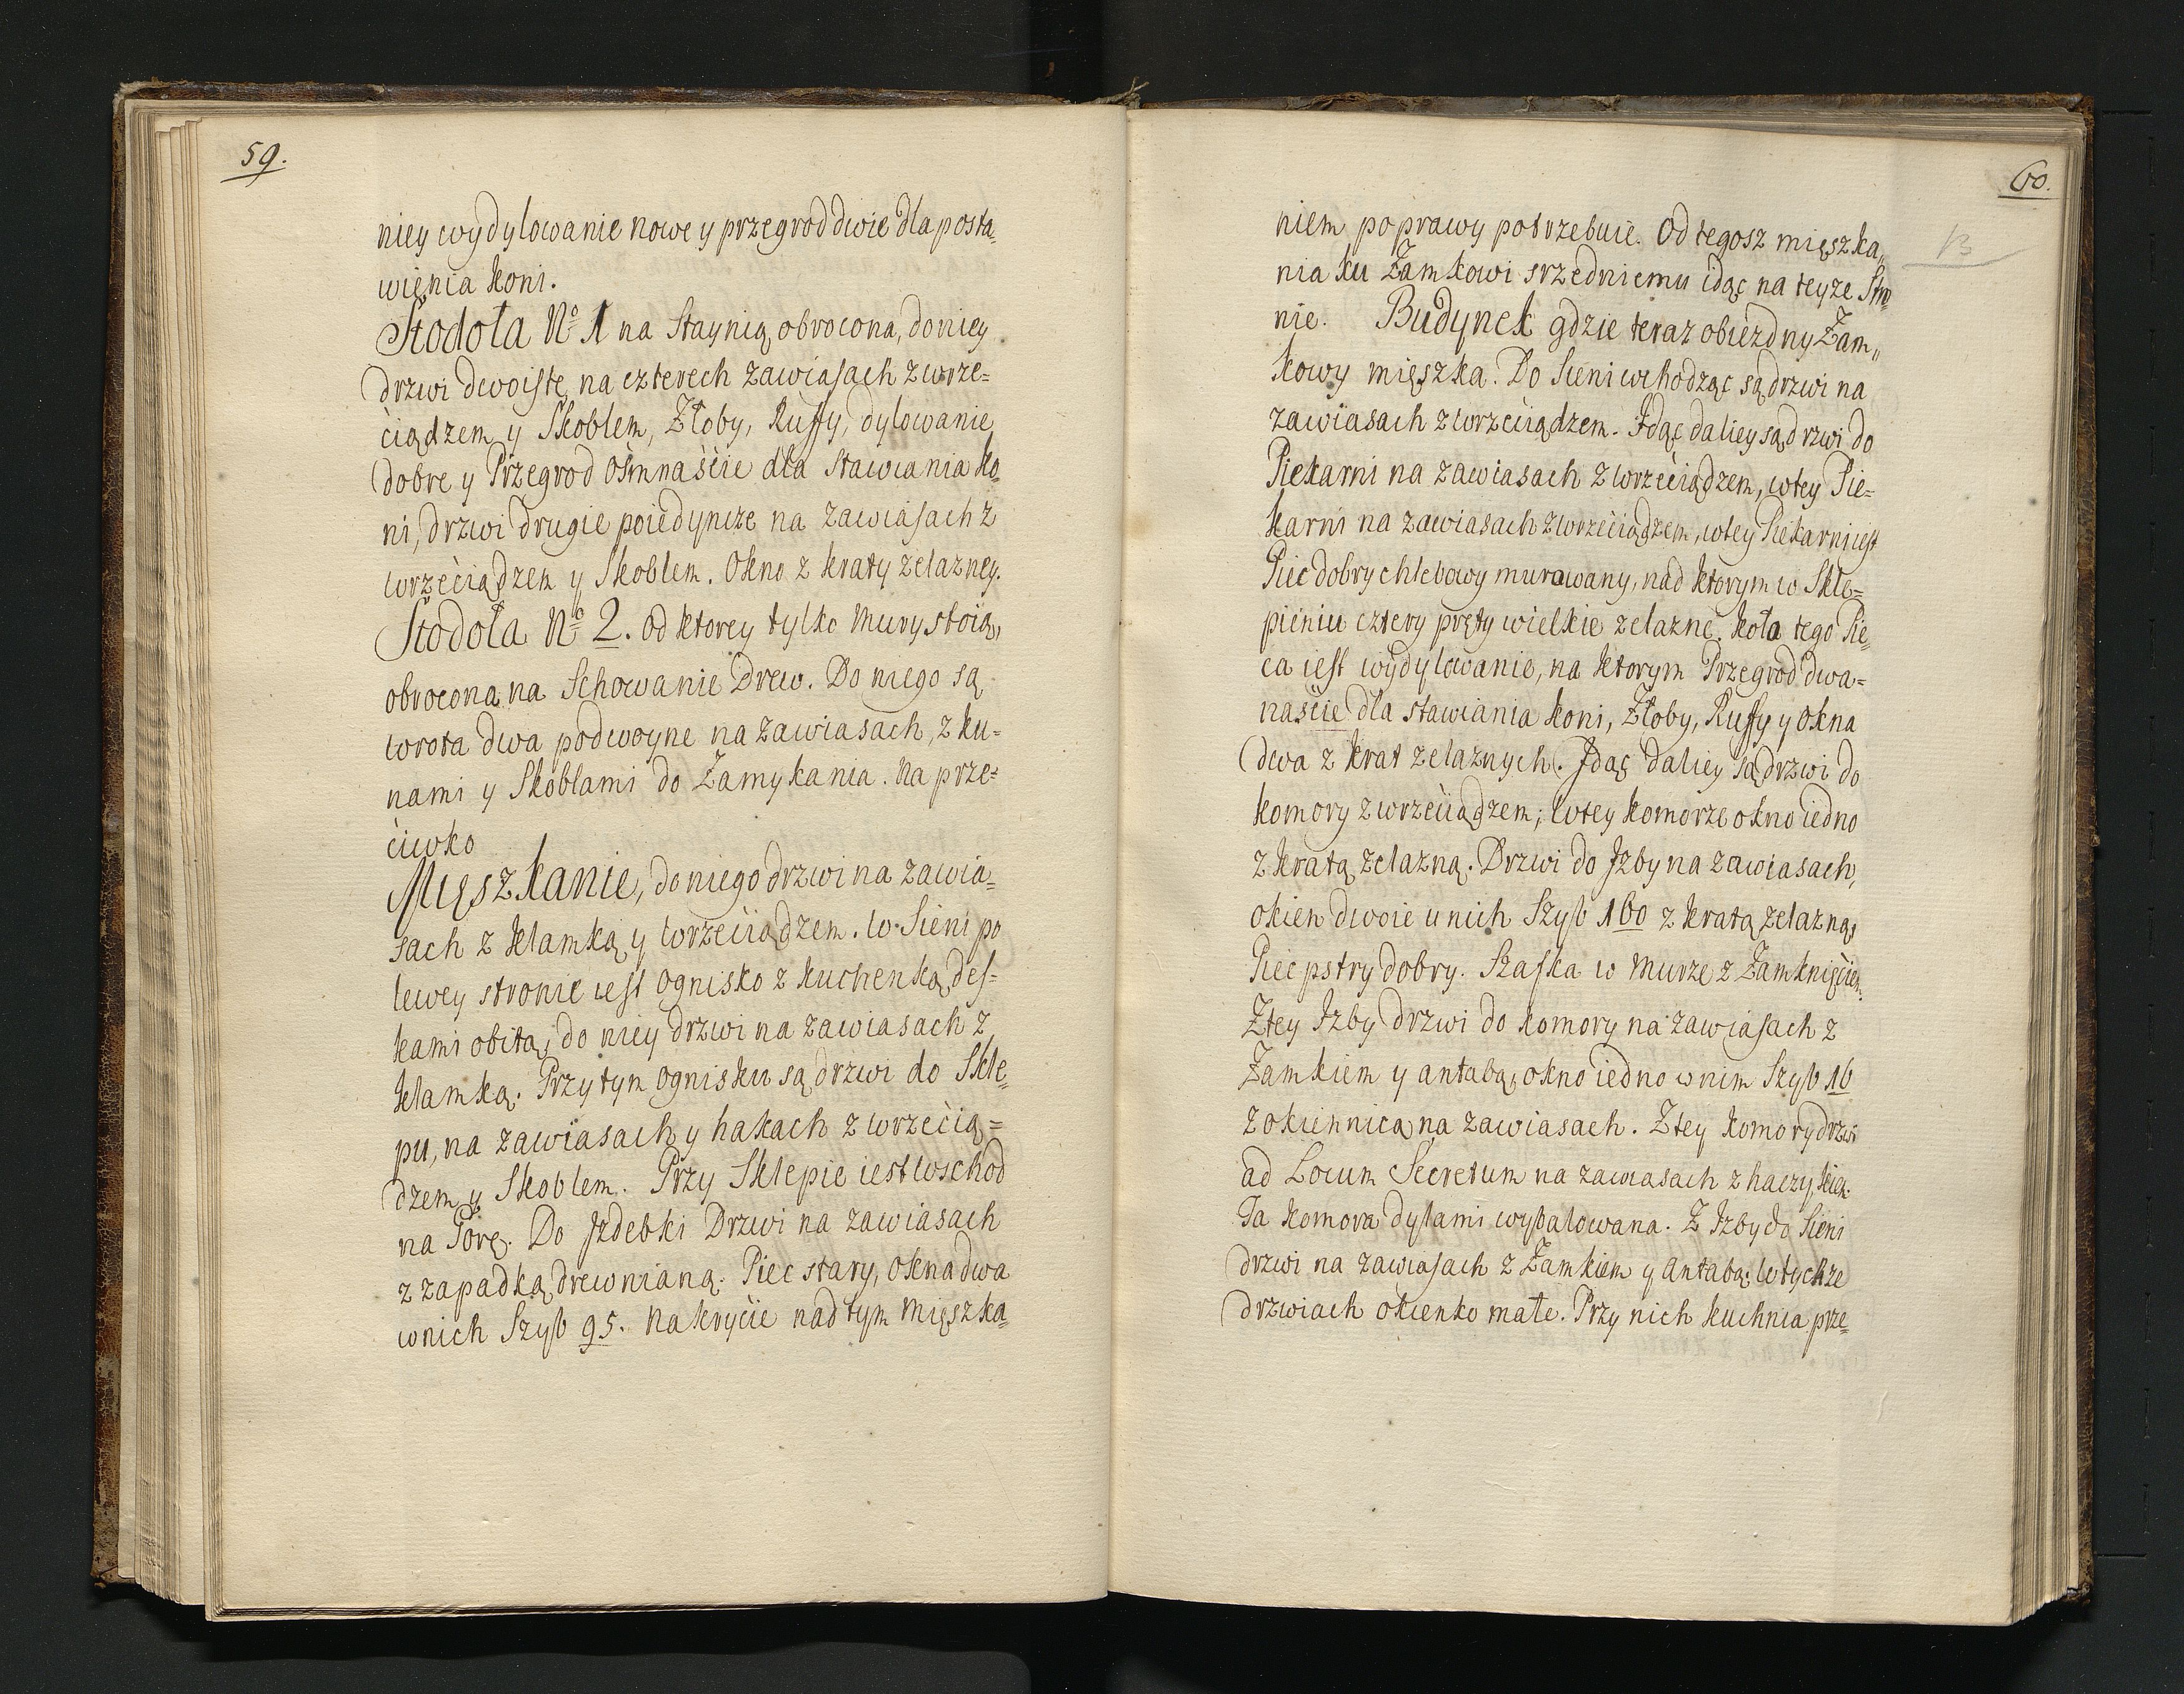 59.
niey wydylowanie nowe y przegrod dwie dla posta=
więnia koni.
Stodoła No 1 na Staynią obrocona, do niey
drzwi dwoiste na czterech zawiasach z wrze=
ciądzem y Skoblem, Złoby, Ruffy, dylowanie
dobre y Przegrod ośmnaście dla stawiania ko=
ni, drzwi drugie poiedyncze na zawiasach z
wrzeciądzem y Skoblem. Okno z kraty zelazney.
Stodoła No 2. od ktorey tylko mury stoią,
obrocona na Schowanie Drew. Do niego są
wrota dwa podwoyne na zawiasach, z ku=
nami y Skoblami do Zamykania. Na prze=
ciwko
Mięszkanie, do niego drzwi na zawia=
sach z klamką y wrzeciądzem. w Sieni po
lewey stronie iest ognisko z kuchenką des=
kami obitą, do niey drzwi na zawiasach z
klamką. Przy tym ognisku są drzwi do Skle=
pu, na zawiasach y hakach z wrzecią=
dzem y Skoblem. Przy Sklepie iest wschod
na Gorę. Do Izdebki Drzwi na zawiasach
z zapadką drewnianą. Piec stary, okna dwa
w nich Szyb 95. Nakrycie nad tym Mięszka=
60.
13
niem poprawy potrzebuie. Od tegosz mięszka„
nia ku Zamkowi srzedniemu idąc na teyze Stro=
nie. Budynek gdzie teraz obiezdny Zam„
kowy mięszka. Do Sieni wchodząc są drzwi na
zawiasach z wrzeciądzem. Idąc daliey są drzwi do
Piekarni na zawiasach z wrzeciądzem, w tey Pie=
karni na zawiasach z wrzeciądzem, w tey Piekarni iest
Piec dobry chlebowy murowany, nad ktorym w Skle=
pieniu cztery pręty wielkie zelazne. koła tego Pie=
ca iest wydylowanie, na ktorym Przegrod dwa=
naście dla stawiania koni, Złoby, Ruffy y okna
dwa z krat zelaznych. Idąc daliey są drzwi do
komory z wrzeciądzem; w tey komorze okno iedno
z kratą zelazną. Drzwi do Izby na zawiasach,
okien dwoie u nich Szyb 160 z kratą zelazną,
Piec pstry dobry. Szafka w murze z Zamknięciem.
Z tey Izby drzwi do komory na zawiasach z
Zamkiem y antabą, okno iedno w nim Szyb 16
z okiennicą na zawiasach. Z tey komory drzwi
ad Locum Secretum na zawiasach z haczykiem.
Ta komora dylami wybalowana. Z Izby do Sieni
drzwi na zawiasach z Zamkiem y antabą; w tychze
drzwiach okienko małe. Przy nich kuchnia prze=